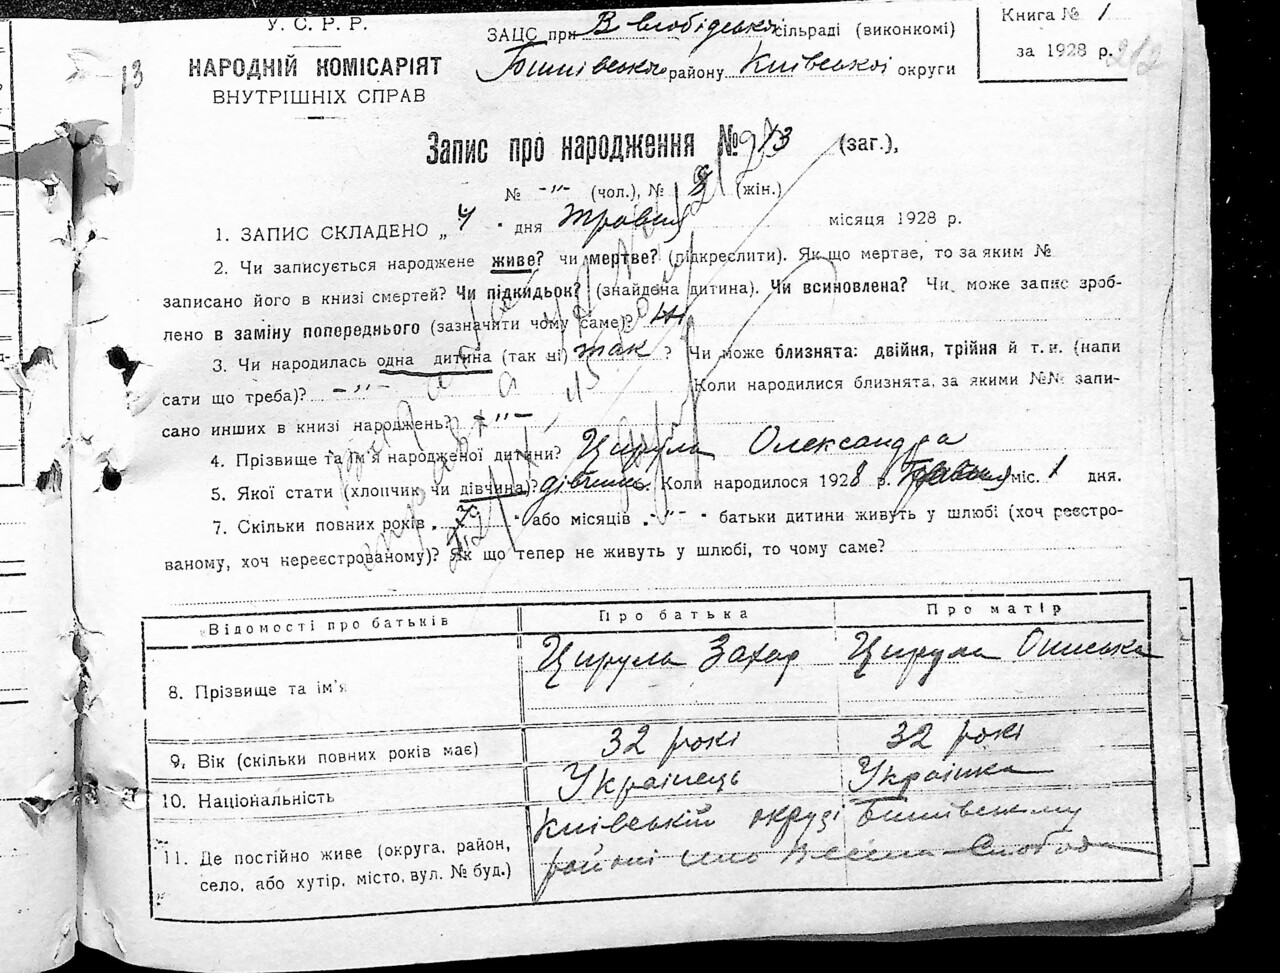 У. С. Р. Р.
НАРОДНІЙ КОМІСАРІЯТ
ВНУТРІШНІХ СПРАВ
ЗАЦС при В слобідській сільраді (виконкомі)
району Київської округи
Книга № 1
за 1928 р.
212
Запис про народження № 213 (заг.),
№ -"- (чол.), № (жін.)
1. ЗАПИС СКЛАДЕНО „4" дня Травня місяця 1928 р.
2. Чи записується народжене живе? чи мертве? (підкреслити). Як що мертве, то за яким №
записано його в книзі смертей? Чи підкидьок? (знайдена дитина). Чи всиновлена? Чи може запис зроб-
лено в заміну попереднього (зазначити чому саме)? Ні
3. Чи народилась одна дитина (так ні) так? Чи може близнята: двійня, трійня й т. и. (напи
сати що треба)? -"- Коли народилися близнята, за якими №№ запи-
сано инших в книзі народжень? -"-
4. Прізвище та ім'я народженої дитини? Цируля Олександра
5. Якої стати (хлопчик чи дівчина)? дівчина. Коли народилося 1928 р. Травня міс. 1 дня.
7. Скільки повних років " або місяців -"- батьки дитини живуть у шлюбі (хоч реєстро-
ваному, хоч нереєстрованому)? Як що тепер не живуть у шлюбі, то чому саме?
Відомості про батьків Про батька Про матір
8. Прізвище та ім'я Цируля Захар Цируля Ониська
9. Вік (скільки повних років має) 32 рокі 32 рокі
10. Національність Українець Українка
11. Де постійно живе (округа, район,
село, або хутір, місто, вул. № буд.)
Київській окрузі
районі Слобода